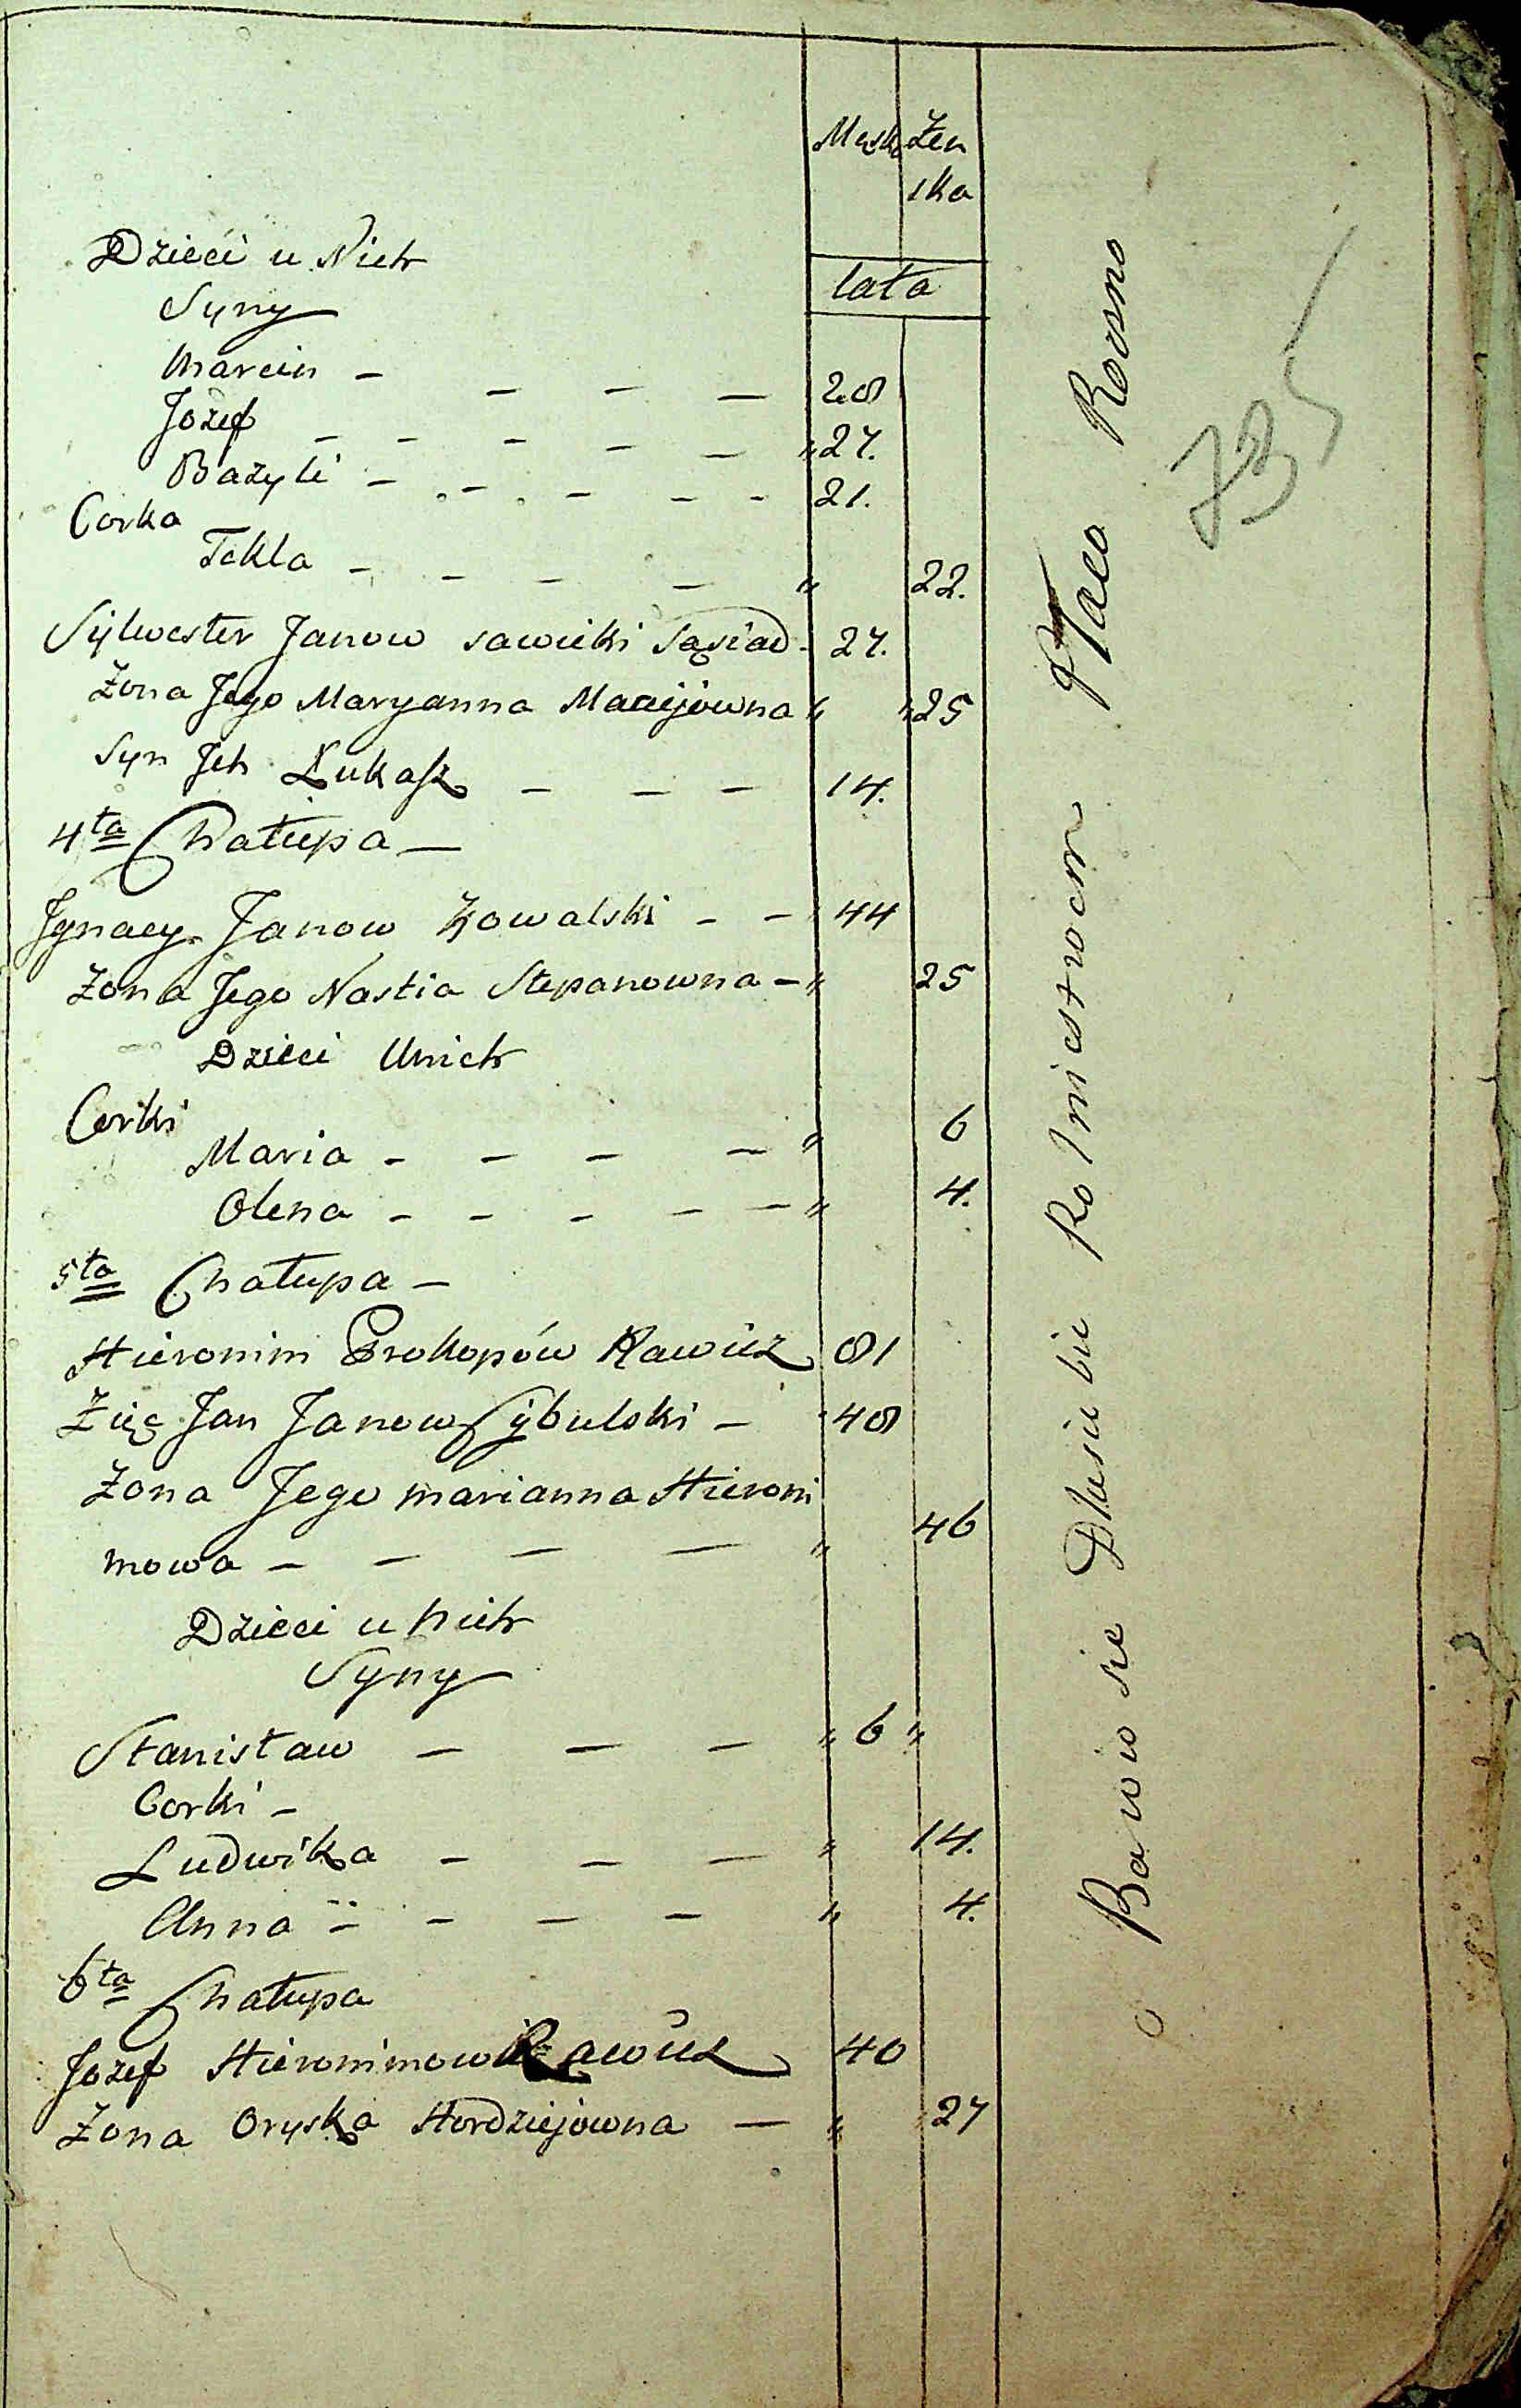 Męska Żen
ska
lata
Dzieci u Nich
Syny
Marcin - - - - 28
Jozef - - - - - " 27.
Bazyli - - - - - 21.
Corka
Tekla - - - - " 22.
Sylwester Janow Sawicki Sąsiad - 27.
Żona Jego Maryanna Maciejowna " " 25
Syn Jch Łukasz - - - 14.
4ta Chałupa -
Jgnacy Janow Kowalski - - 44
Żona Jego Nastia Stepanowna - " 25
Dzieci Unich
Corki
Maria - - - - " 6
Olena - - - - - " 4.
5ta Chałupa -
Hieronim Prokopów Rawicz 81
Zięć Jan Janow Cybulski - 48
Żona Jego marianna Hieroni
mowa - - - - " 46
Dzieci u nich
Syny
Stanisław - - - " 6 "
Corki -
Ludwika - - - " 14.
Anna - - - - " 4.
6ta Chałupa
Jozef Hieronimow Rawicz 40
Żona Oryska Hordziejowna - " 27
Bawio sie Dłusiebie Rolnictwem Płaco Rocsno